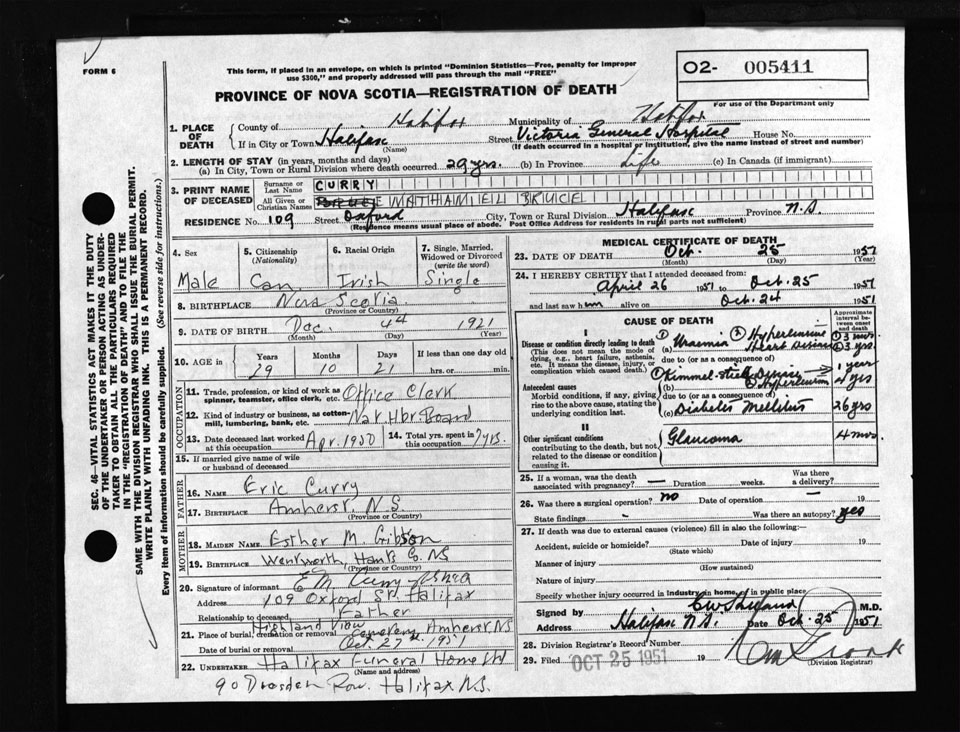 FORM 6
This form, if placed in an envelope, on which is printed "Dominion Statistics—Free, penalty for improper
use $300," and properly addressed will pass through the mail "FREE"
PROVINCE OF NOVA SCOTIA—REGISTRATION OF DEATH
O2- 005411
For use of the Department only
SEC. 46—VITAL STATISTICS ACT MAKES IT THE DUTY
OF THE UNDERTAKER OR PERSON ACTING AS UNDER-
TAKER TO OBTAIN ALL THE PARTICULARS REQUIRED
IN THE "REGISTRATION OF DEATH" AND TO FILE THE
SAME WITH THE DIVISION REGISTRAR WHO SHALL ISSUE THE BURIAL PERMIT.
WRITE PLAINLY WITH UNFADING INK. THIS IS A PERMANENT RECORD.
Every item of information should be carefully supplied. (See reverse side for instructions.)
1. PLACE OF DEATH
County of Halifax Municipality of Halifax
If in City or Town Halifax Street Victoria General Hospital House No.
(Name) (If death occurred in a hospital or institution, give the name instead of street and number)
2. LENGTH OF STAY (in years, months and days)
(a) In City, Town or Rural Division where death occurred 29 yrs. (b) In Province Life (c) In Canada (if immigrant)
3. PRINT NAME OF DECEASED
Surname or Last Name CURRY
All Given or Christian Names NATHANIEL BRUCE
RESIDENCE No. 109 Street Oxford City, Town or Rural Division Halifax Province N.S.
(Residence means usual place of abode. Post Office Address for residents in rural parts not sufficient)
4. Sex
Male
5. Citizenship (Nationality)
Can.
6. Racial Origin
Irish
7. Single, Married, Widowed or Divorced (write the word)
Single
8. BIRTHPLACE Nova Scotia
(Province or Country)
9. DATE OF BIRTH Dec. 4th 1921
(Month) (Day) (Year)
10. AGE in Years Months Days If less than one day old
29 10 21 hrs. or min.
OCCUPATION
11. Trade, profession, or kind of work as spinner, teamster, office clerk, etc. Office Clerk
12. Kind of industry or business, as cotton-mill, lumbering, bank, etc. Nat. Hbr. Board
13. Date deceased last worked at this occupation Apr. 1950 14. Total yrs. spent in this occupation 7 yrs.
15. If married give name of wife or husband of deceased
FATHER
16. NAME Eric Curry
17. BIRTHPLACE Amherst N.S.
(Province or Country)
MOTHER
18. MAIDEN NAME Esther M. Gibson
19. BIRTHPLACE Wentworth, Hants Co. NS
(Province or Country)
20. Signature of informant E M Curry
Address 109 Oxford St. Halifax
Relationship to deceased Father
21. Place of burial, cremation or removal Highland View Cemetery Amherst NS
Date of burial or removal Oct. 27th 1951
22. UNDERTAKER Halifax Funeral Home Ltd
(Name and address)
90 Dresden Row. Halifax N.S.
MEDICAL CERTIFICATE OF DEATH
23. DATE OF DEATH Oct. 25 1951
(Month) (Day) (Year)
24. I HEREBY CERTIFY that I attended deceased from
April 26 1951 to Oct. 25 1951
and last saw him alive on Oct. 24 1951
CAUSE OF DEATH
Approximate interval between onset and death
I
Disease or condition directly leading to death
(This does not mean the mode of dying, e.g., heart failure, asthenia, etc. It means the disease, injury, or complication which caused death.)
(a) ① Uraemia ② Hypertensive Heart Disease ① 3 mos ② 3 yrs
due to (or as a consequence of)
Antecedent causes
Morbid conditions, if any, giving rise to the above cause, stating the underlying condition last.
(b) ① Kimmel-stiel Disease ② Hypertension 1 year 4 yrs
due to (or as a consequence of)
(c) Diabetes Mellitus 26 yrs
II
Other significant conditions
contributing to the death, but not related to the disease or condition causing it.
Glaucoma 4 mos
25. If a woman, was the death associated with pregnancy? — Duration weeks. Was there a delivery? —
26. Was there a surgical operation? no Date of operation — 19
State findings - Was there an autopsy? yes
27. If death was due to external causes (violence) fill in also the following:—
Accident, suicide or homicide? Date of injury 19
(State which)
Manner of injury
(How sustained)
Nature of injury
Specify whether injury occurred in industry in home or in public place
Signed by M.D.
Address Halifax N.S. Date Oct. 25 1951
28. Division Registrar's Record Number
29. Filed OCT 25 1951 19
(Division Registrar)